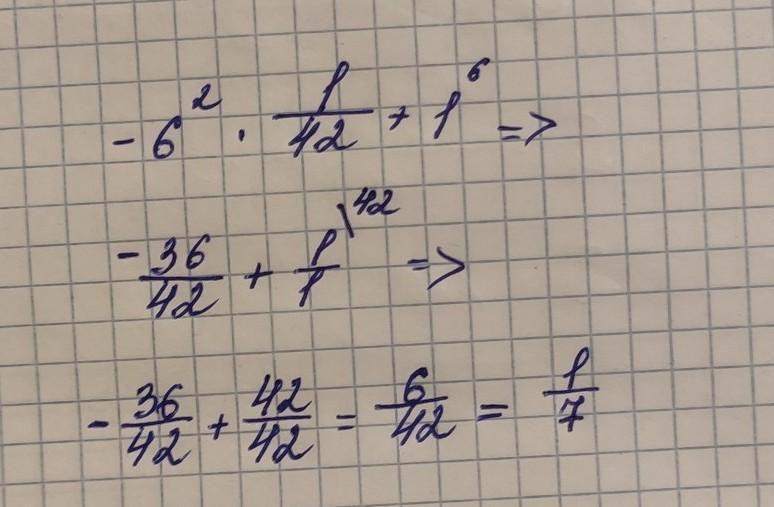 -6² · 1/42 + 1⁶ =>
-36/42 + 1/1 \⁴² =>
-36/42 + 42/42 = 6/42 = 1/7